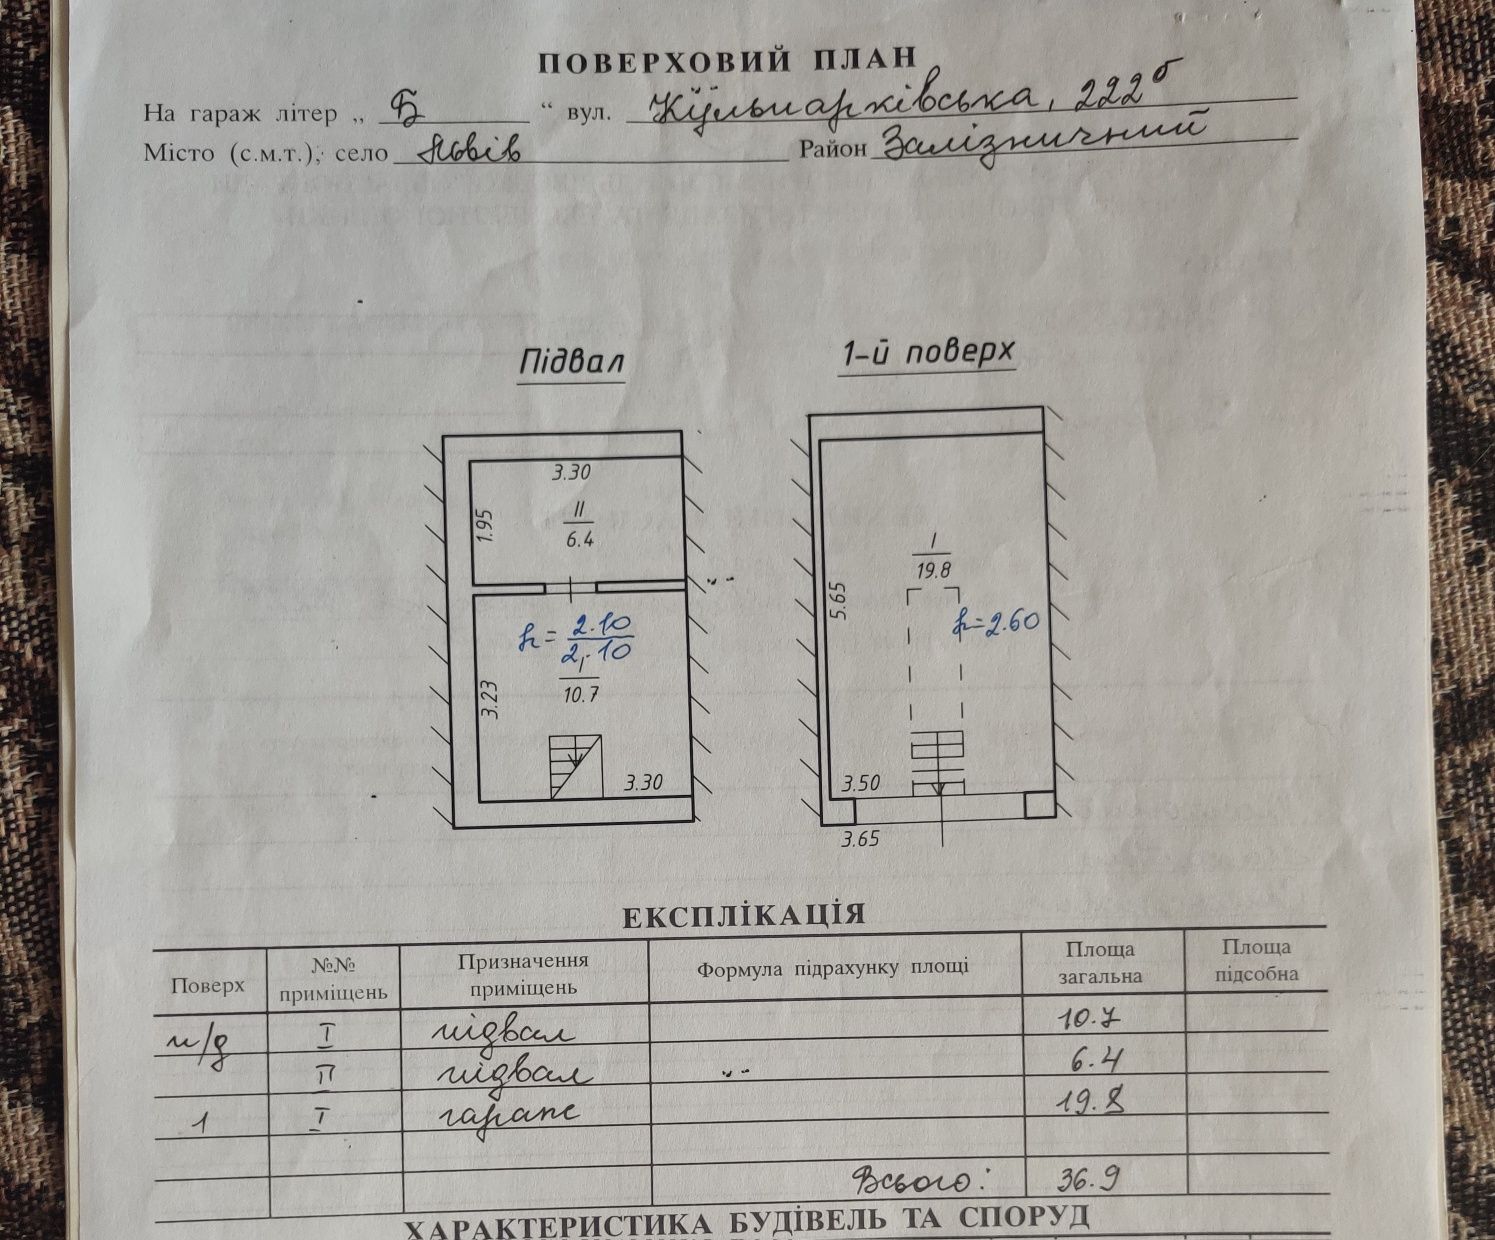 ПОВЕРХОВИЙ ПЛАН
На гараж літер „ Б “ вул. Кульпарківська, 222б
Місто (с.м.т.), село Львів Район Залізничний
Підвал
1-й поверх
3.30
1.95
II
6.4
h = 2.10
2.10
I
10.7
3.23
3.30
I
19.8
5.65
h=2.60
3.50
3.65
ЕКСПЛІКАЦІЯ
Поверх №№ приміщень Призначення приміщень Формула підрахунку площі Площа загальна Площа підсобна
п/д I підвал 10.7
II підвал 6.4
1 I гараж 19.8
Всього: 36.9
ХАРАКТЕРИСТИКА БУДІВЕЛЬ ТА СПОРУД